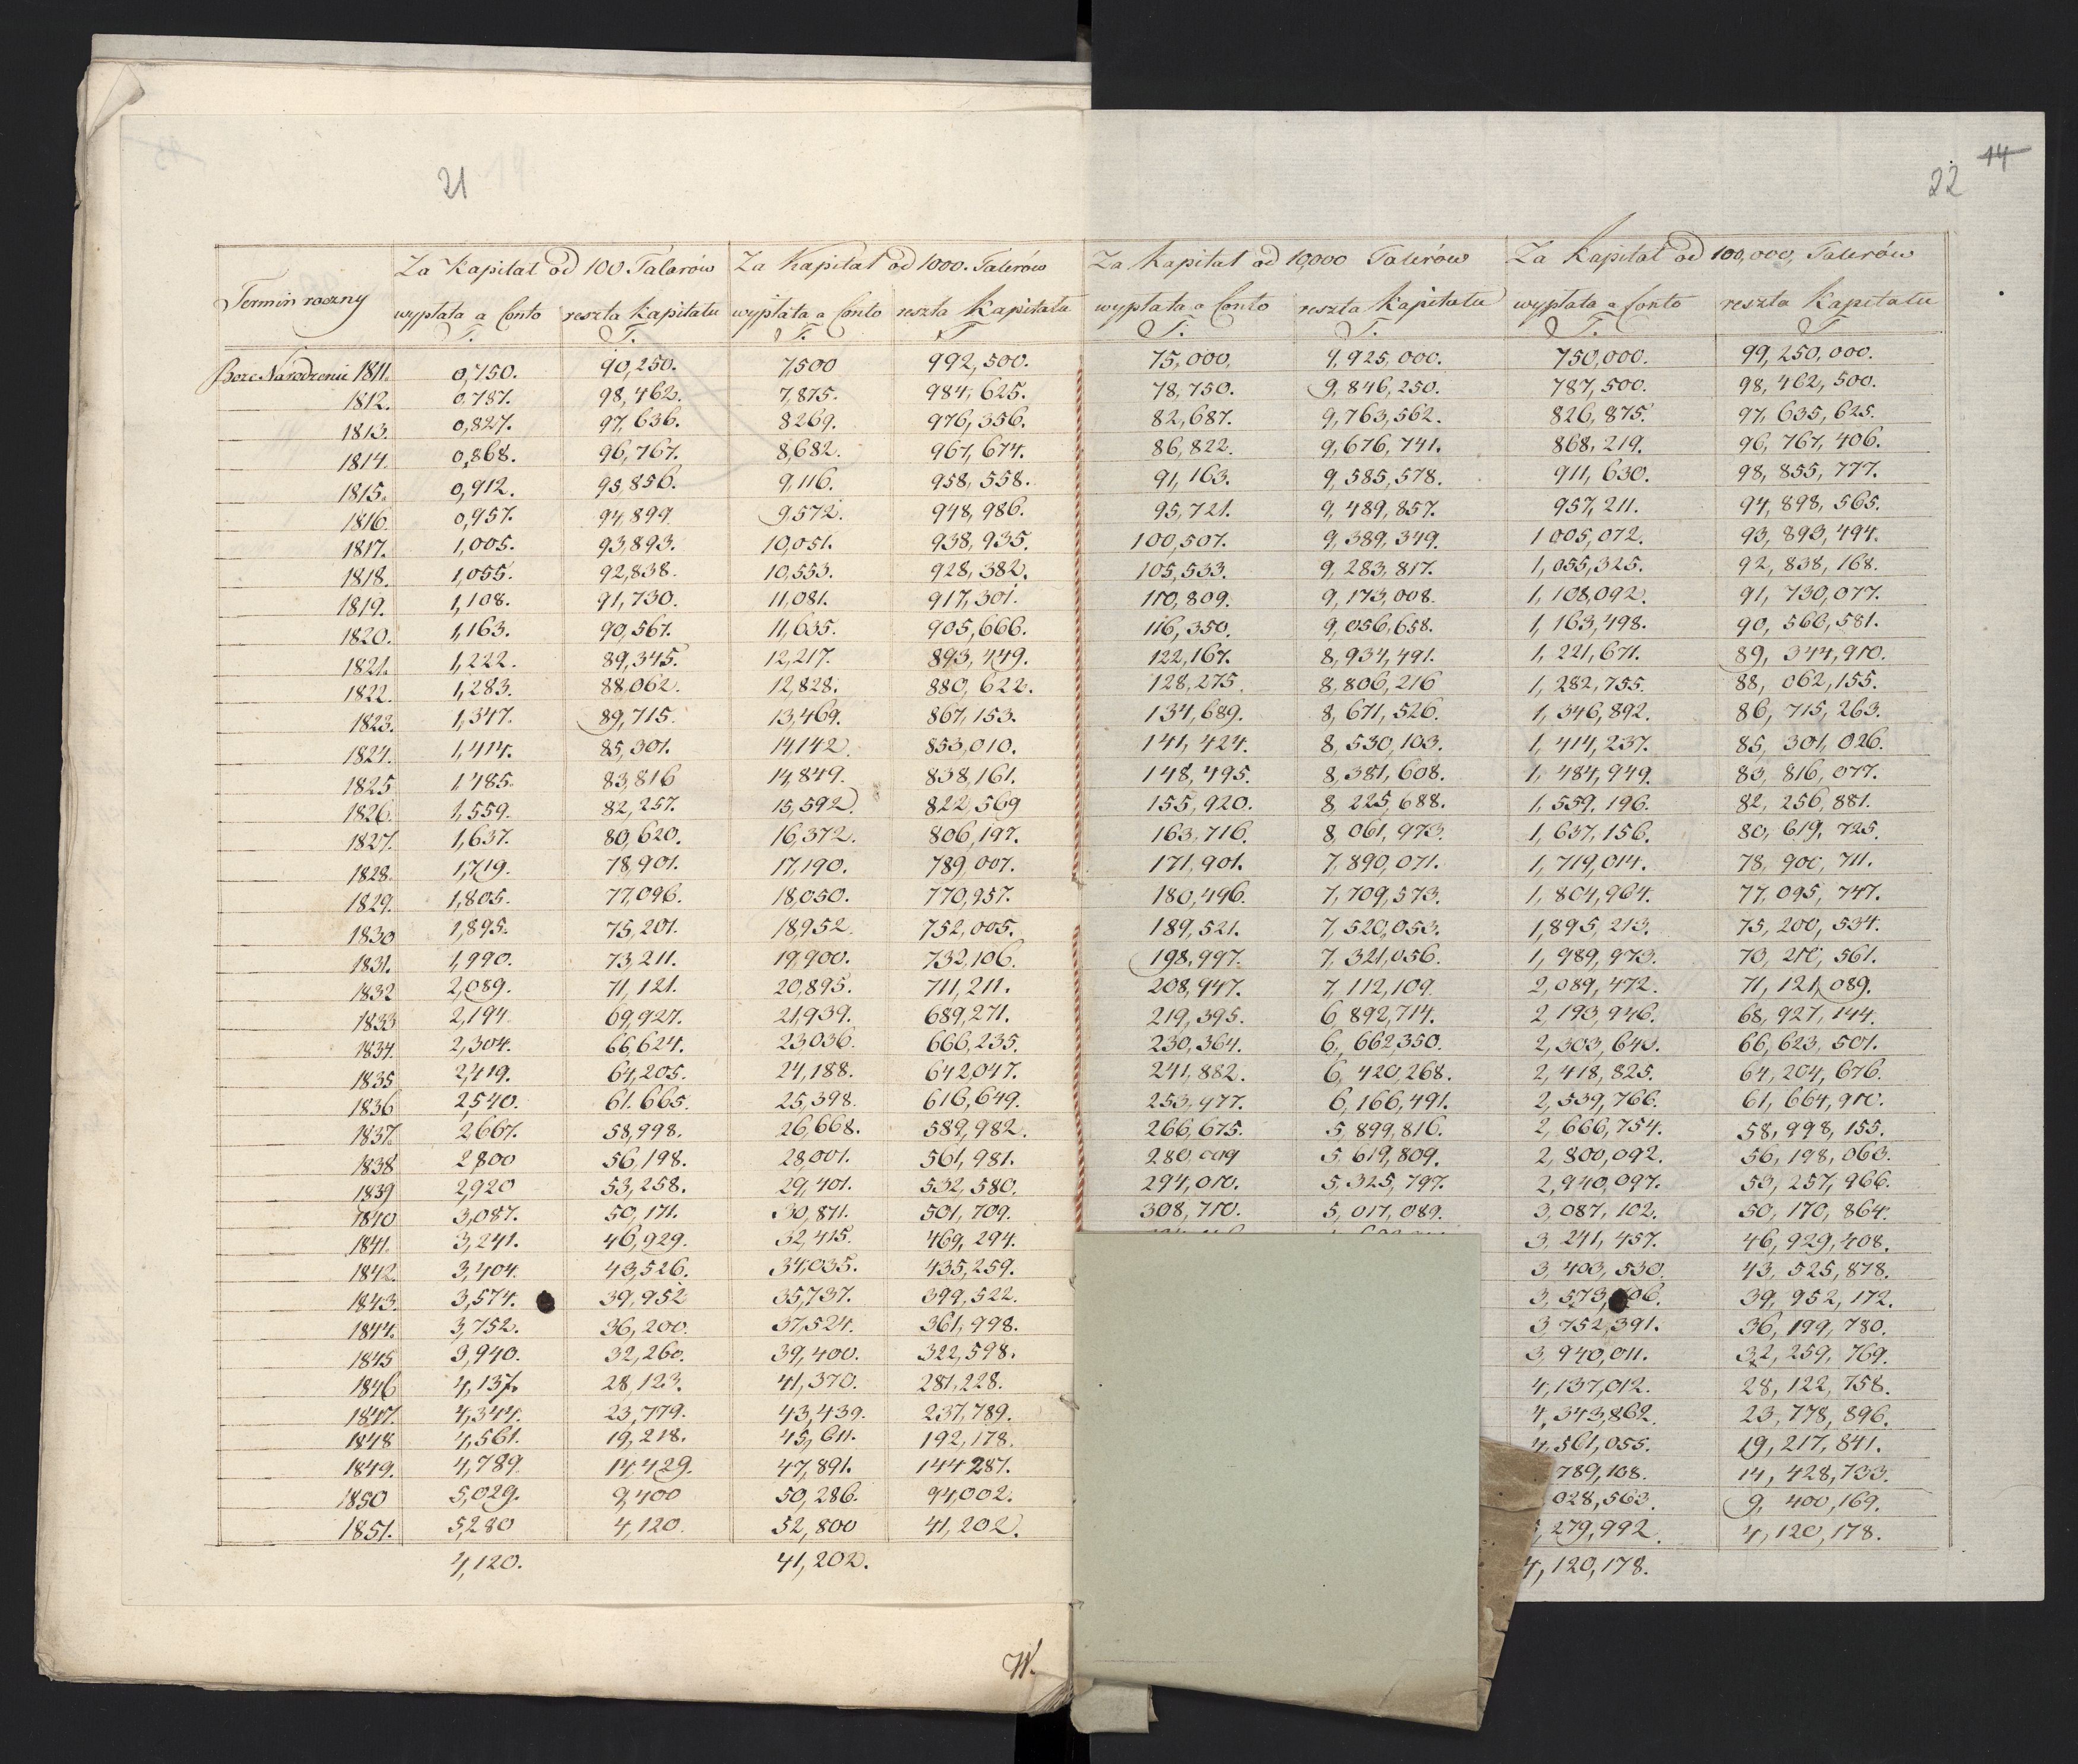 21
22 14
Za Kapitał od 100 Talarów Za Kapitał od 1000. Talerów Za Kapitał od 10,000 Talerów Za Kapitał od 100,000, Talerów
Termin roczny wypłata a Conto reszta Kapitału wypłata a Conto reszta Kapitału wypłata a Conto reszta Kapitału wypłata a Conto reszta Kapitału
T. T. T. T T. T. T. T
Boże Narodzenie 1811. 0,750. 90,250. 7,500 992,500. 75,000, 9,925,000. 750,000. 99,250,000.
1812. 0,787. 98,462. 7,875. 984,625. 78,750. 9,846,250. 787,500. 98,462,500.
1813. 0,827. 97,636. 8269. 976,356. 82,687. 9,763,562. 826,875. 97,635,625.
1814. 0,868. 96,767. 8,682. 967,674. 86,822. 9,676,741. 868,219. 96,767,406.
1815. 0,912. 95,856. 9,116. 958,558. 91,163. 9,585,578. 911,630. 98,855,777.
1816. 0,957. 94,899. 9,572. 948,986. 95,721. 9,489,857. 957,211. 94,898,565.
1817. 1,005. 93,893. 10,051. 938,935. 100,507. 9,389,349. 1005,072. 93,893,494.
1818. 1,055. 92,838. 10,553. 928,382. 105,533. 9,283,817. 1,055,325. 92,838,168.
1819. 1,108. 91,730. 11,081. 917,301. 110,809. 9,173,008. 1,108,092. 91,730,077.
1820. 1,163. 90,567. 11,635. 905,666. 116,350. 9,056,658. 1,163,498. 90,566,581.
1821. 1,222. 89,345. 12,217. 893,449. 122,167. 8,934,491. 1,221,671. 89,344,910.
1822. 1,283. 88,062. 12,828. 880,622. 128,275. 8,806,216 1,282,755. 88,062,155.
1823. 1,347. 89,715. 13,469. 867,153. 134,689. 8,671,526. 1,346,892. 86,715,263.
1824. 1,414. 85,301. 14,142. 853,010. 141,424. 8,530,103. 1,414,237. 85,301,026.
1825 1,485. 83,816 14,849. 838,161. 148,495. 8,381,608. 1,484,949. 83,816,077.
1826. 1,559. 82,257. 15,592. 822,569 155,920. 8,225,688. 1,559,196. 82,256,881.
1827. 1,637. 80,620. 16,372. 806,197. 163,716. 8,061,973. 1,637,156. 80,619,725.
1828. 1,719. 78,901. 17,190. 789,007. 171,901. 7,890,071. 1,719,014. 78,900,711.
1829. 1,805. 77,096. 18,050. 770,957. 180,496. 7,709,573. 1,804,964. 77,095,747.
1830 1,895. 75,201. 18,952. 752,005. 189,521. 7,520,053. 1,895,213. 75,200,534.
1831. 1,990. 73,211. 19,900. 732,106. 198,997. 7,321,056. 1,989,973. 73,210,561.
1832 2,089. 71,121. 20,895. 711,211. 208,947. 7,112,109. 2,089,472. 71,121,089.
1833 2,194. 69,927. 21,939. 689,271. 219,395. 6,892,714. 2,193,946. 68,927,144.
1834. 2,304. 66,624. 23,036. 666,235. 230,364. 6,662,350. 2,303,643. 66,623,501.
1835 2,419. 64,205. 24,188. 642,047. 241,882. 6,420,268. 2,418,825. 64,204,676.
1836 2,540. 61.665. 25,398. 616,649. 253,977. 6,166,491. 2,539,766. 61,664,910.
1837. 2,667. 58,998. 26,668. 589,982. 266,675. 5,899,816. 2,666,754. 58,998,155.
1838 2,800 56,198. 28,001. 561,981. 280,009 5,619,809. 2,800,092. 56,198,063.
1839 2,920 53,258. 29,401. 532,580. 294,010. 5,325,797. 2,940,097. 53,257,966.
1840 3,087. 50,171. 30,871. 501,709. 308,710. 5,017,089. 3,087,102. 50,170,864.
1841. 3,241. 46,929. 32,415. 469,294. 3,241,457. 46,929,408.
1842. 3,404. 43,526. 34,035. 435,259. 3,403,530. 43,525,878.
1843. 3,574. 39,952 35,737. 399,522. 39,952,172.
1844. 3,752. 36,200. 37,524. 361,998. 3,752,391. 36,199,780.
1845 3,940. 32,260. 39,400. 322,598. 3,940,011. 32,259,769.
1846 4,137. 28,123. 41,370. 281,228. 4,137,012. 28,122,758.
1847. 4,344. 23,779. 43,439. 237,789. 4,343,862. 23,778,896.
1848 4,561. 19,218. 45,611. 192,178. 4,561,055. 19,217,841.
1849. 4,789. 14,429. 47,891. 144287. 789,108. 14,428,733.
1850 5,029. 9,400 50,286. 94,002. 028,563. 9,400,169.
1851. 5,280 4,120. 52,800 41,202. 279,992. 4,120,178.
4,120. 41,202. 4,120,178.
W.